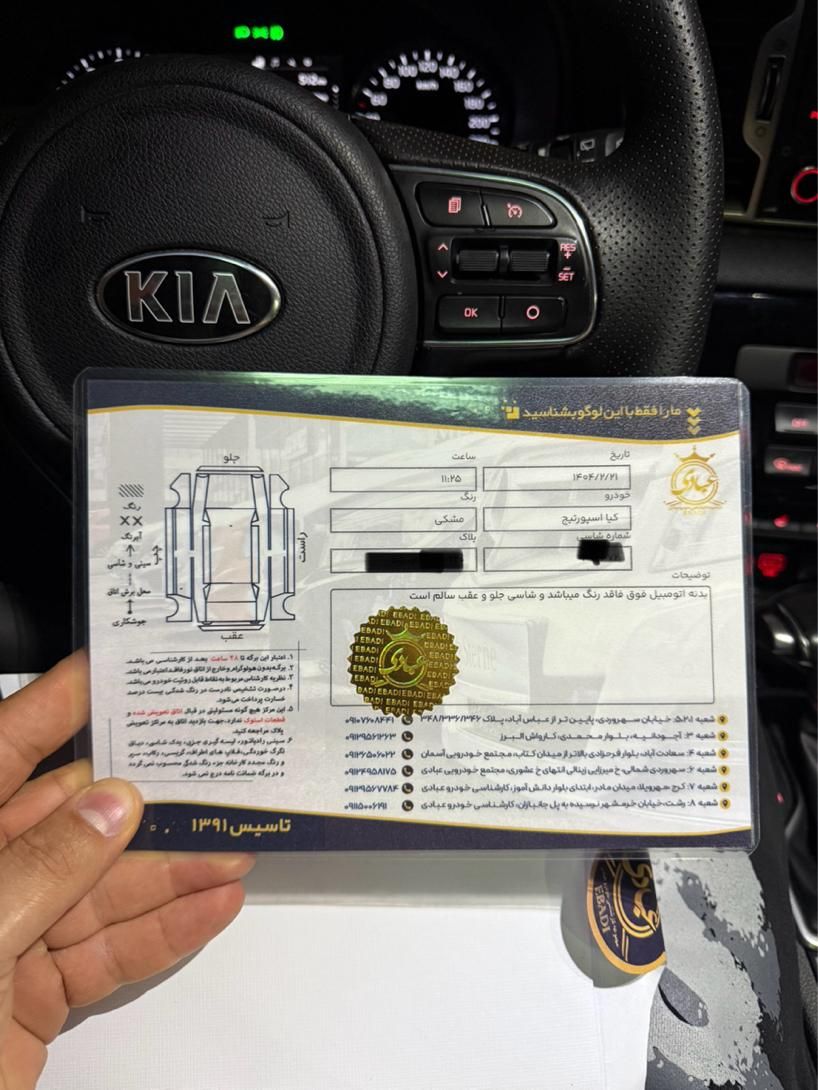 100 120 140
80
160
60
km/h
180
200
RES
+
SET
OK
KIA
ما را فقط با این لوگو بشناسید
عبادی
EBADI
تاریخ
ساعت
۱۴۰۴/۲/۲۱
۱۱:۲۵
خودرو
رنگ
کیا اسپورتیج
مشکی
شماره شاسی
پلاک
توضیحات
بدنه اتومبیل فوق فاقد رنگ میباشد و شاسی جلو و عقب سالم است
جلو
راست
چپ
عقب
رنگ
XX
آبرنگ
سینی و شاسی
محل برش اتاق
جوشکاری
EBADI EBADI EBADI
عبادی
۱. اعتبار این برگه تا ۴۸ ساعت بعد از کارشناسی می باشد.
۲. برگه بدون هولوگرام و خارج از اتاق نور فاقد اعتبار می باشد.
۳. نظریه کارشناس مربوط به نقاط قابل روئیت خودرو می باشد.
۴. درصورت تشخیص نادرست در رنگ شدگی بیست درصد
خسارت پرداخت می‌شود.
۵. این مرکز هیچ گونه مسئولیتی در قبال اتاق تعویض شده و
قطعات استوک ندارد، جهت بازدید اتاق به مراکز تعویض
پلاک مراجعه کنید.
۶. سینی رادیاتور، لیسه گیری جزء، یدک شاسی، دیاق
تگرگ خوردگی، قالپاق های اطراف، گریس، رکاب، سپر
و رنگ مجدد کارخانه جزء رنگ شدگی محسوب نمی گردد
و در برگه ضمانت نامه درج نمی شود.
شعبه ۵،۲،۱: خیابان سهروردی، پایین تر از عباس آباد، پلاک ۳۴۸/۳۳۶/۳۴۶ ۰۹۱۰۷۶۰۸۴۴۱
شعبه ۳: آجودانیه، بلوار محمدی، کارواش البرز ۰۹۱۲۹۵۶۱۲۶۳
شعبه ۴: سعادت آباد، بلوار فرحزادی بالاتر از میدان کتاب، مجتمع خودرویی آسمان ۰۹۱۲۶۵۰۶۰۲۲
شعبه ۶: سهروردی شمالی، خ میرزایی زینالی انتهای خ عشوری، مجتمع خودرویی عبادی ۰۹۱۲۴۹۵۸۱۷۵
شعبه ۷: کرج مهرویلا، میدان مادر، ابتدای بلوار دانش آموز، کارشناسی خودرو عبادی ۰۹۱۲۹۵۶۷۷۸۴
شعبه ۸: رشت، خیابان خرمشهر نرسیده به پل جانبازان، کارشناسی خودرو عبادی ۰۹۱۱۵۰۰۶۱۹۱
تاسیس ۱۳۹۱
عبادی
EBADI